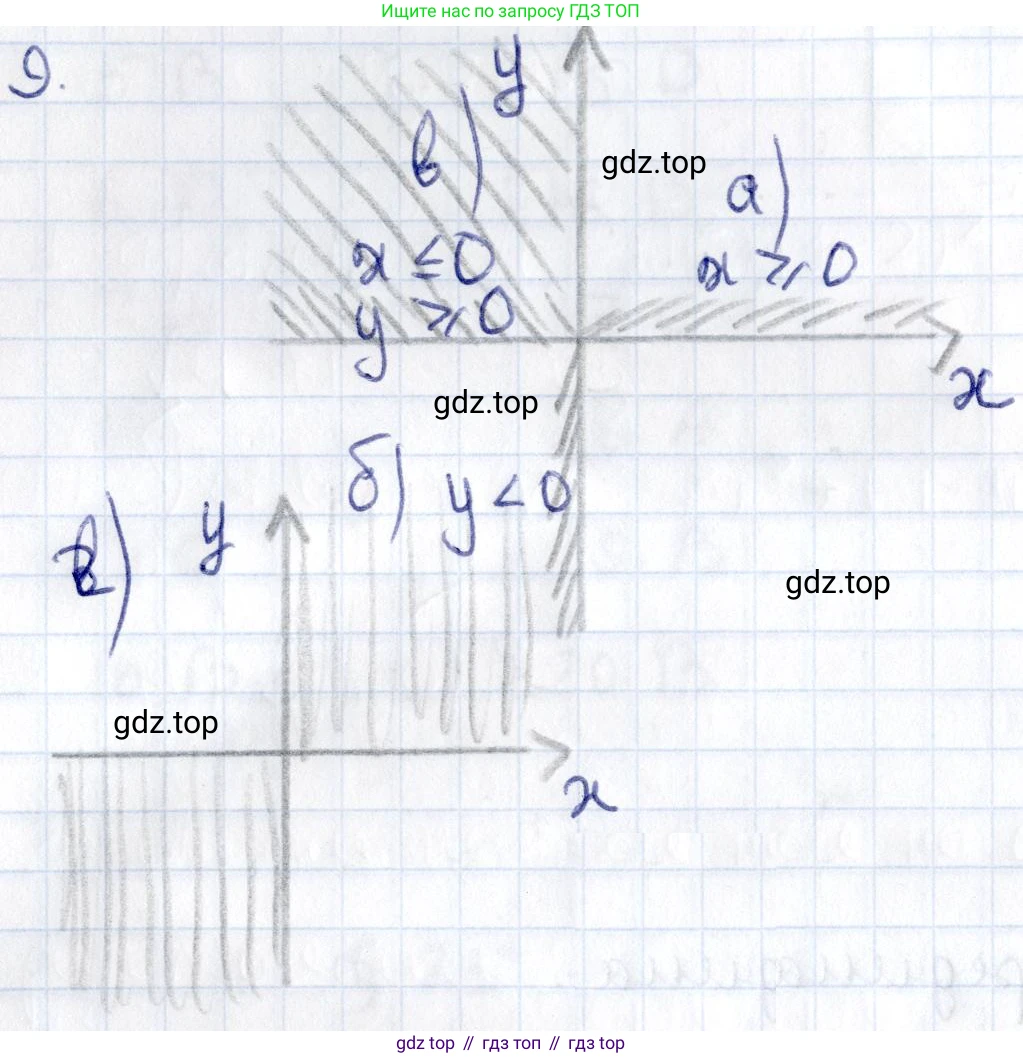 Ищите нас по запросу ГДЗ ТОП
9.
y
в)
gdz.top
а)
x ≤ 0
x ≥ 0
y ≥ 0
x
gdz.top
б) y < 0
y
gdz.top
gdz.top
x
gdz top // гдз топ // гдз top